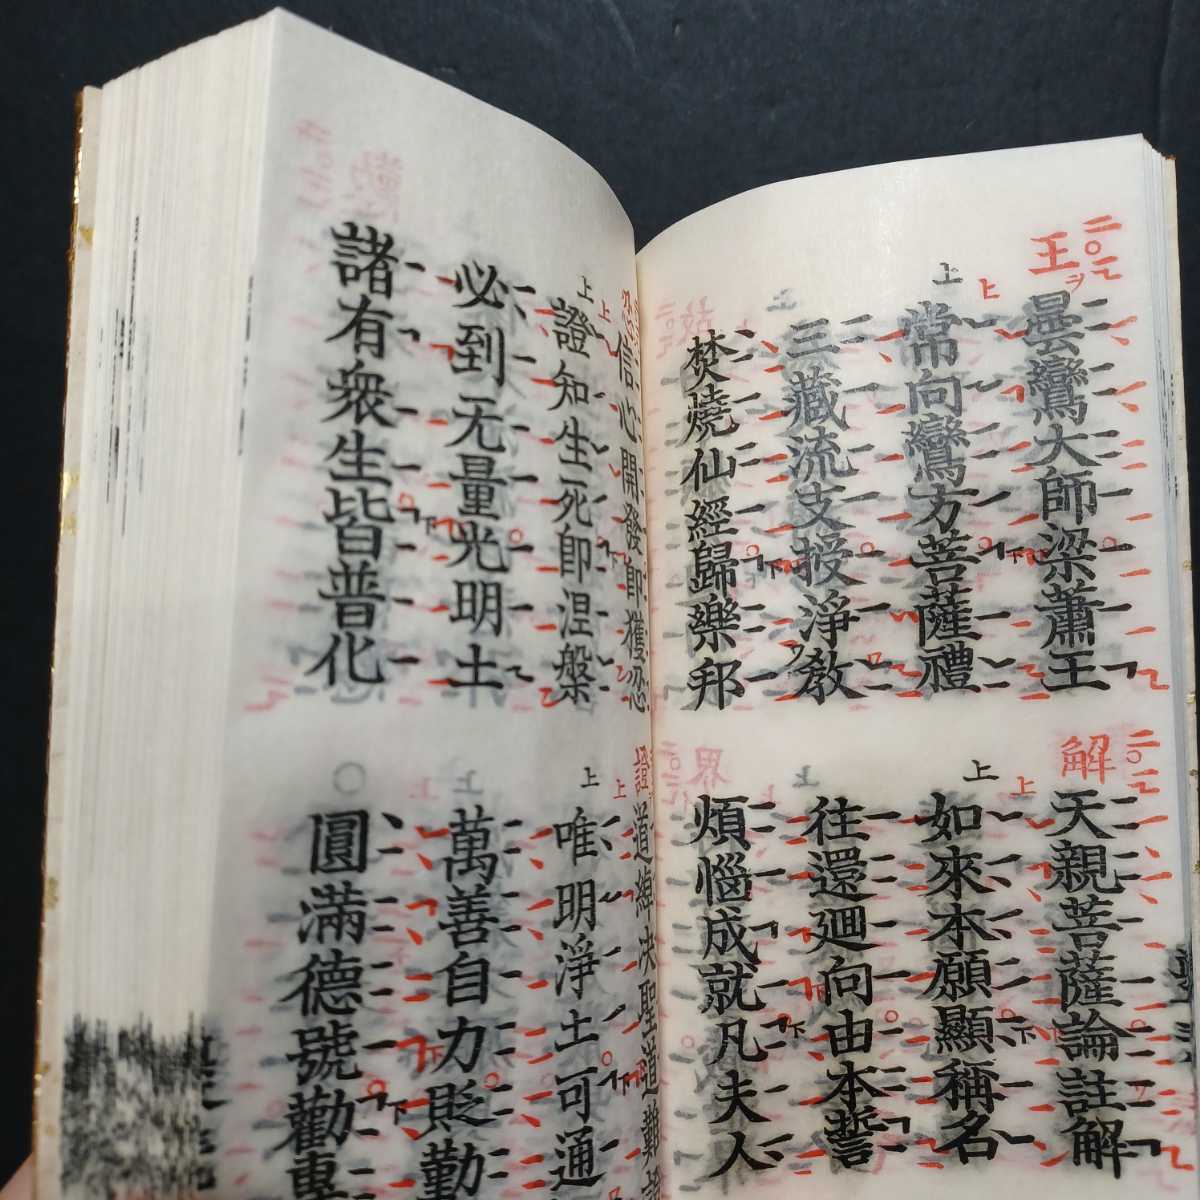 二〇二
王ヲ
曇鸞大師梁蕭王
上
常向鸞方菩薩禮
三藏流支授淨教
焚燒仙經歸樂邦
二〇二
解
天親菩薩論註解
上
如來本願顯稱名
往還廻向由本誓
煩惱成就凡夫人
忍
信心開發即獲忍
上
證知生死即涅槃
必到无量光明土
諸有衆生皆普化
證
道綽决聖道難證
上
唯明淨土可通
萬善自力貶勤
圓滿德號勸專